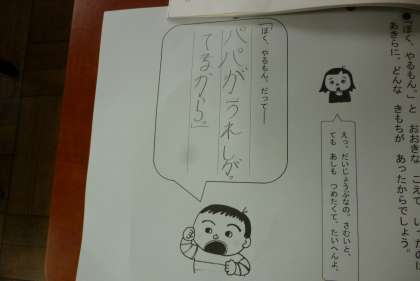 ●「ぼく、やるもん。」と おおきな こえで いったのは
あきらに、どんな きもちが あったからでしょう。
えっ、だいじょうぶなの。さむいと、
ても あしも つめたくて、たいへんよ。
「ぼく、やるもん。だって――
パパがうれしが。
てるから。」